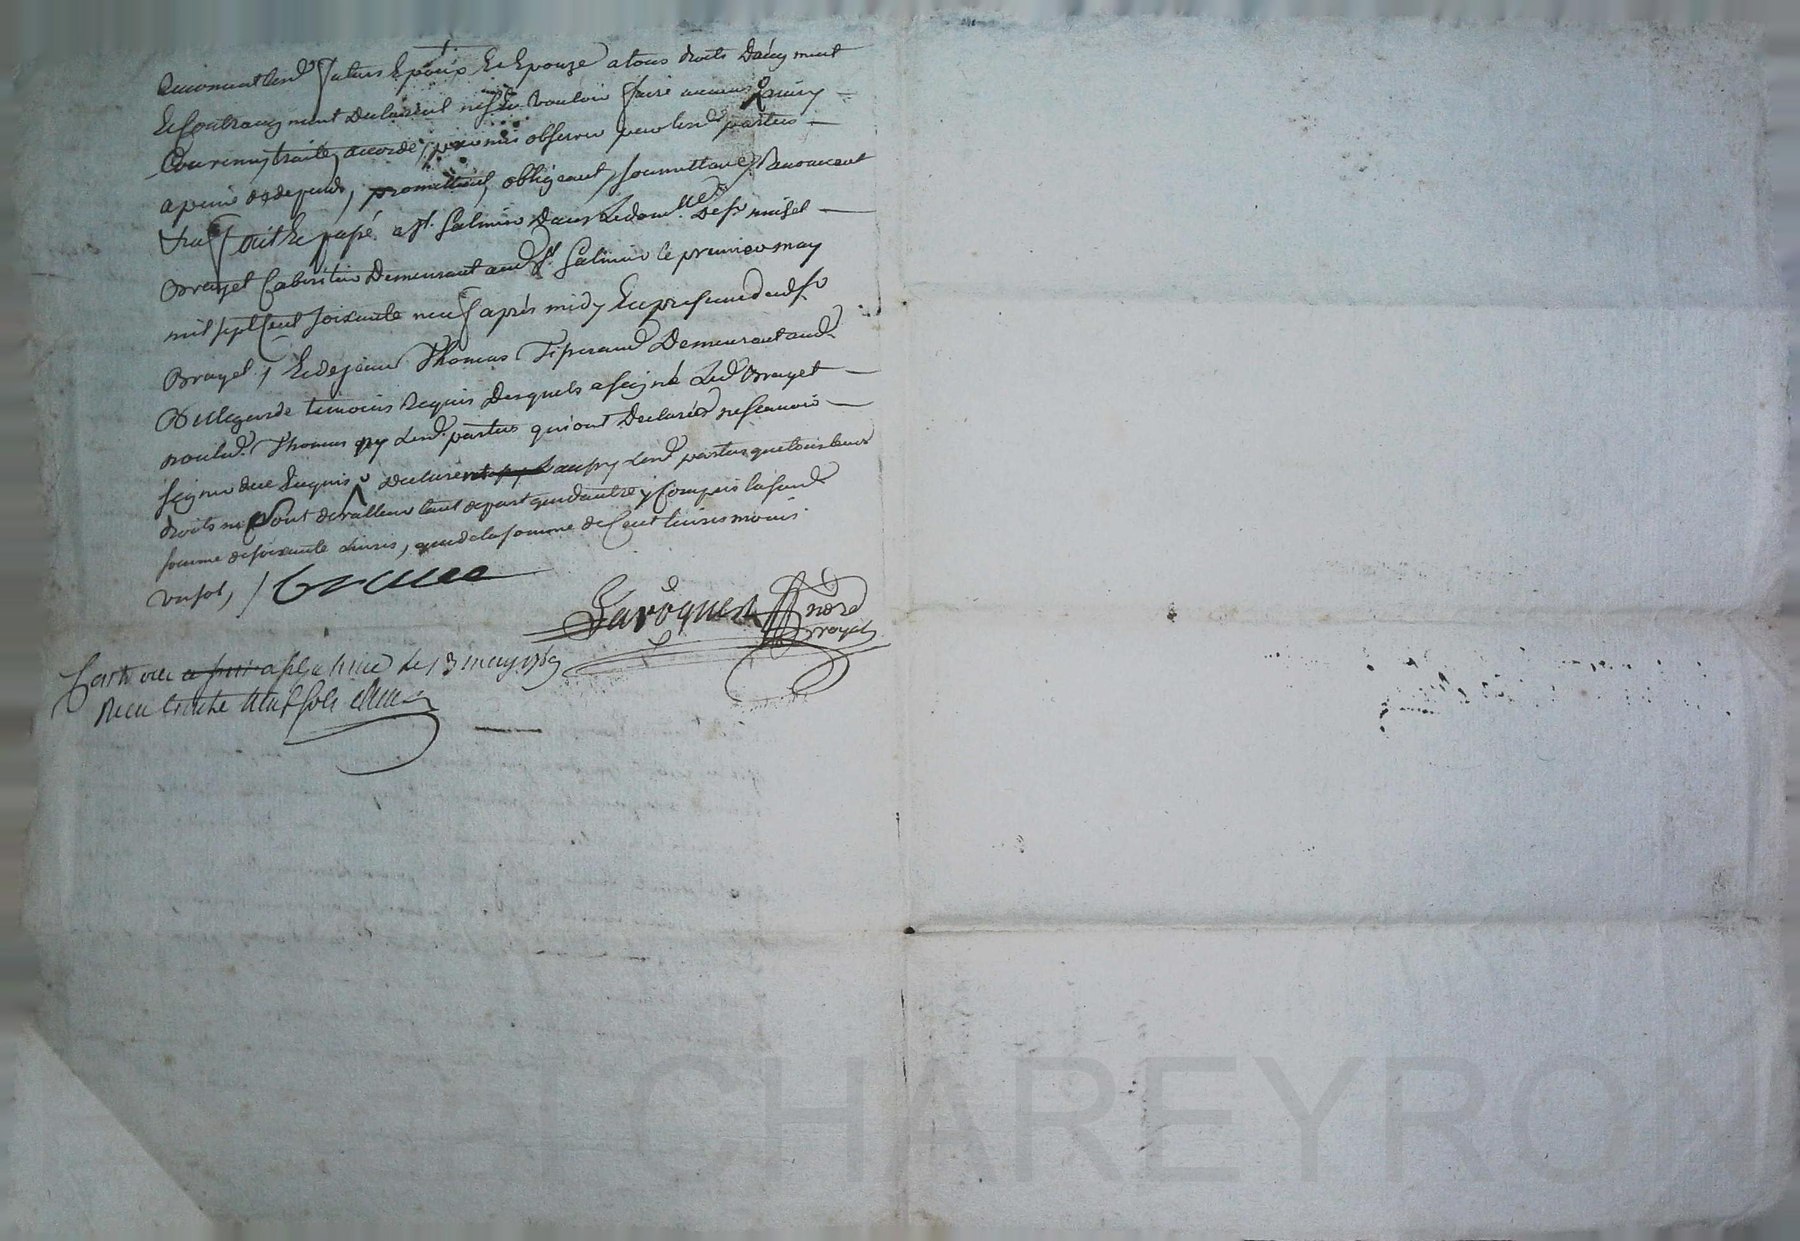 lesd futurs Epoux Et Epouze a tous droits D'augment
Et Contraugment Declarant ne vouloir faire aucune
Convenu, traité, accordé, promis observer par lesd parties
a peine de depends, promettant, obligeant, soumettant, Renonceant
fait Et passé a St. Galmier Dans Le domlle De sr
Brayet Cabartier Demeurant aud St. Galmier le premier may
mil sept Cent soixante neuf après midy En presence dud sr
Brayet, Et de jean Thomas Demeurant aud
Bellegarde temoins Requis Desquels a signé Led Brayet
non led. Thomas ny Lesd. parties qui ont Declarés ne scavoir
signer de ce Enquis Declarent aussy Lesd parties que tous leurs
droits ne sont de valleur tant de part que d'autre y Compris la susd
somme de soixante Livres, que de la somme de Cent livres moins
un sol, /
Laroque Nore
Brayet
le 13 may 1769
Recu trente neuf sols
CHAREYRON